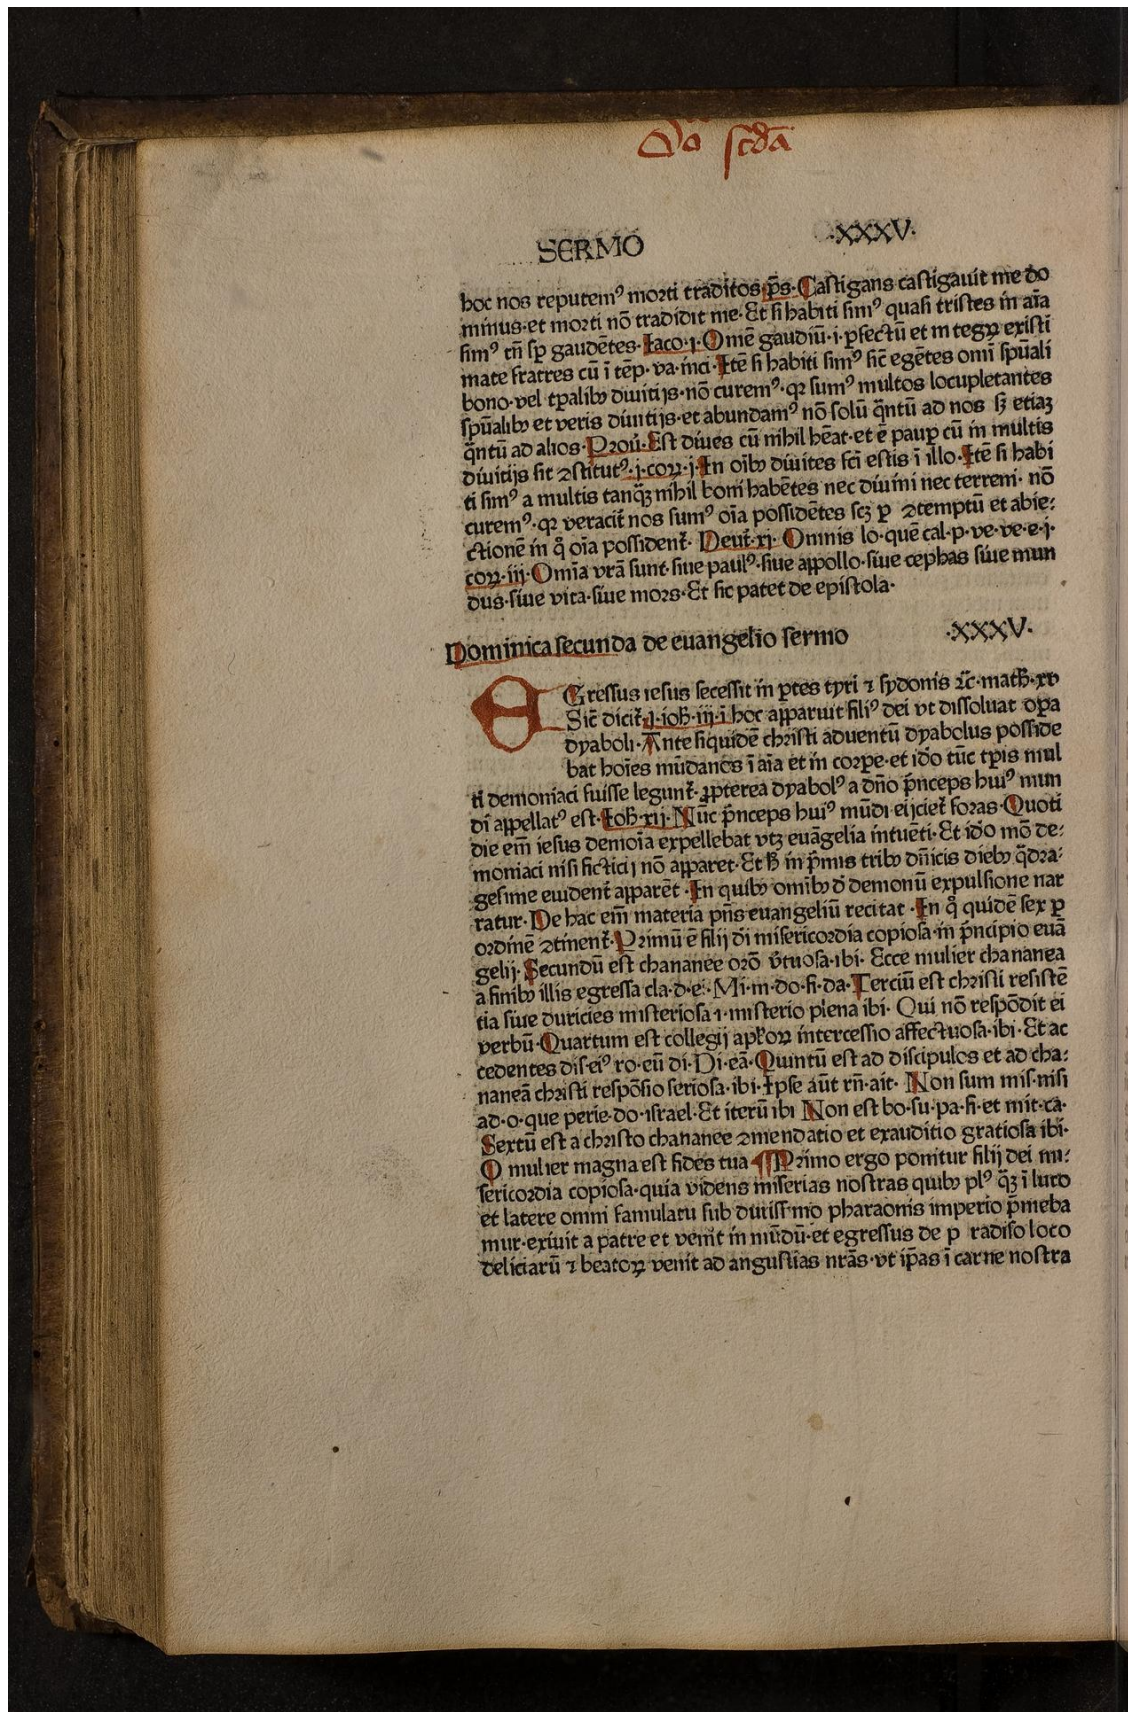 Do scdā
SERMO ·XXXV·
hoc nos reputemꝰ morti traditos· ps̄· Castigans castigauit me do
minus·et morti nō tradidit me·Et si habiti simꝰ quasi tristes in aīa
simꝰ tn̄ sꝑ gaudētes·Iaco·j·Omē gaudiū·i·ꝑfectū et integꝝ existi
mate fratres cū ī tēp·va·inci·Itē si habiti simꝰ sic̄ egētes omī spūali
bono·vel tꝑalibꝫ diuitijs·nō curemꝰ·qꝛ sumꝰ multos locupletantes
spūalibꝫ et veris diuitijs·et abundamꝰ nō solū q̄ntū ad nos sꝫ etiaꝫ
q̄ntū ad alios·Prou̅·Est diues cū nihil hēat·et ē pauꝑ cū in multis
diuitijs sit ꝯstitutꝰ·j·coꝝ·j·In oībꝫ diuites fc̄i estis ī illo·Itē si habi
ti simꝰ a multis tanq̄ꝫ nihil boni habētes nec diuini nec terreni· nō
curemꝰ·qꝛ veracit̄ nos sumꝰ oīa possidētes scꝫ ꝑ ꝯtemptū et abie⸗
ctionē in q̊ oīa possident̄· Deut̄·xj· Omnis lo·quē cal·p·ve·ve·e·j·
coꝝ·iij·Omīa vr̄a sunt·siue paulꝰ·siue appollo·siue cephas siue mun
dus·siue vita·siue mors·Et sic patet de epistola·
Dominica secunda de euangelio sermo ·XXXV·
EGressus iesus secessit in ꝑtes tyri ⁊ sydonis ⁊c̄·math̄·xv
Sic̄ dicit̄·j·ioh̄·iij·ī hoc apparuit filiꝰ dei vt dissoluat oꝑa
dyaboli·Ante siquidē christi aduentū dyabolus posside
bat hoīes mūdanos ī aīa et in corꝑe·et id̊o tūc tꝑis mul
ti demoniaci fuisse legunt̄·ꝓpterea dyabolꝰ a dn̄o p̄nceps huiꝰ mun
di appellatꝰ est·Ioh̄·xij·Nūc p̄nceps huiꝰ mūdi eijciet̄ foras·Quoti
die em̄ iesus demoīa expellebat vtꝫ euāgelia intuēti·Et id̊o mō de⸗
moniaci nisi ficticij nō apparet·Et h̄ in p̄mis tribꝫ dn̄icis diebꝫ q̄dra⸗
gesime euident̄ apparēt·In quibꝫ omībꝫ d̊ demonū expulsione nar
ratur·De hac em̄ materia pn̄s euangeliū recitat·In q̊ quidē sex ꝑ
ordinē ꝯtinent̄·Primū ē filij d̄i misericordia copiosa·in p̄ncipio euā
gelij·Secundū est chananee orō v̄tuosa·ibi· Ecce mulier chananea
a finibꝫ illis egressa cla·d·e·Mi·m·do·fi·da·Terciū est christi resistē
tia siue duricies misteriosa ⁊·misterio plena ibi· Qui nō respōdit ei
verbū·Quartum est collegij apl̄oꝝ intercessio affectuosa·ibi·Et ac
cedentes dis·eiꝰ ro·eū di·Di·eā·Quintū est ad discipulos et ad cha⸗
naneā christi respōsio seriosa·ibi·Ipse aūt rn̄·ait· Non sum mis·nisi
ad·o·que perie·do·israel·Et iterū ibi Non est bo·su·pa·fi·et mit·ca·
Sextū est a christo chananee ꝯmendatio et exauditio gratiosa ibi·
O mulier magna est fides tua ¶Primo ergo ponitur filij dei mi⸗
sericordia copiosa·quia videns miserias nostras quibꝫ plꝰ q̄ꝫ ī luto
et latere omni famulatu sub duriss·mo pharaonis imperio p̄meba
mur·exiuit a patre et venit in mūdū·et egressus de p radiso loco
deliciarū ⁊ beatoꝝ venit ad angustias nr̄as·vt ip̄as ī carne nostra